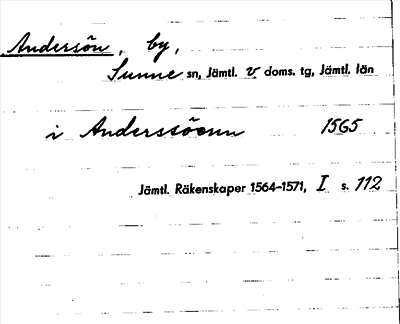 Andersön, by,
Sunne sn, Jämtl. v doms. tg, Jämtl. län
i Anderssöenn 1565
Jämtl. Räkenskaper 1564-1571, I s. 112